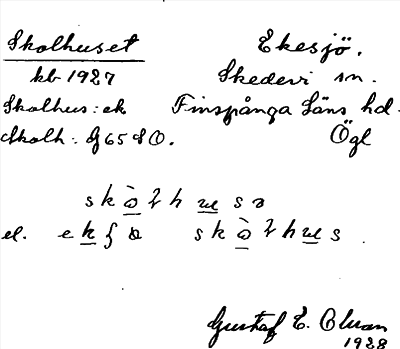 Skolhuset Ekesjö.
kb 1927 Skedevi sn.
Skolhus: ek Finspånga Läns hd.
Skolh: g 65 S O. Ögl
skò̱lhu̱sə
el. ek̲ʃə skò̱lhu̱s.
Gustaf E.
1928